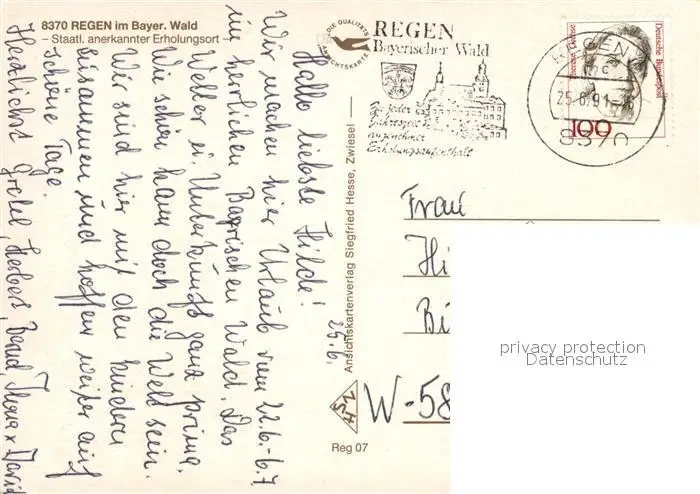 8370 REGEN im Bayer. Wald
– Staatl. anerkannter Erholungsort –
25.6.
Hallo liebste Hilde!
Wir machen hier Urlaub vom 22.6.-6.7.
im herrlichen Bayrischen Wald. Das
Wetter u. Unterkunft ganz prima.
Wie schön kann doch die Welt sein.
Wir sind hier mit den Kindern
zusammen und hoffen weiter auf
schöne Tage.
Herzlichst Gretel, Herbert, Bernd, x David
Ansichtskartenverlag Siegfried Hesse, Zwiesel
DIE QUALITÄTS
ANSICHTSKARTE
HSZ
Reg 07
REGEN
Bayerischer Wald
Zu jeder
Jahreszeit
angenehmer
Erholungsaufenthalt
REGEN
25.6.91
8370
Deutsche Bundespost
Therese Giehse
100
Frau
Hi
Bü
W-58
privacy protection
Datenschutz